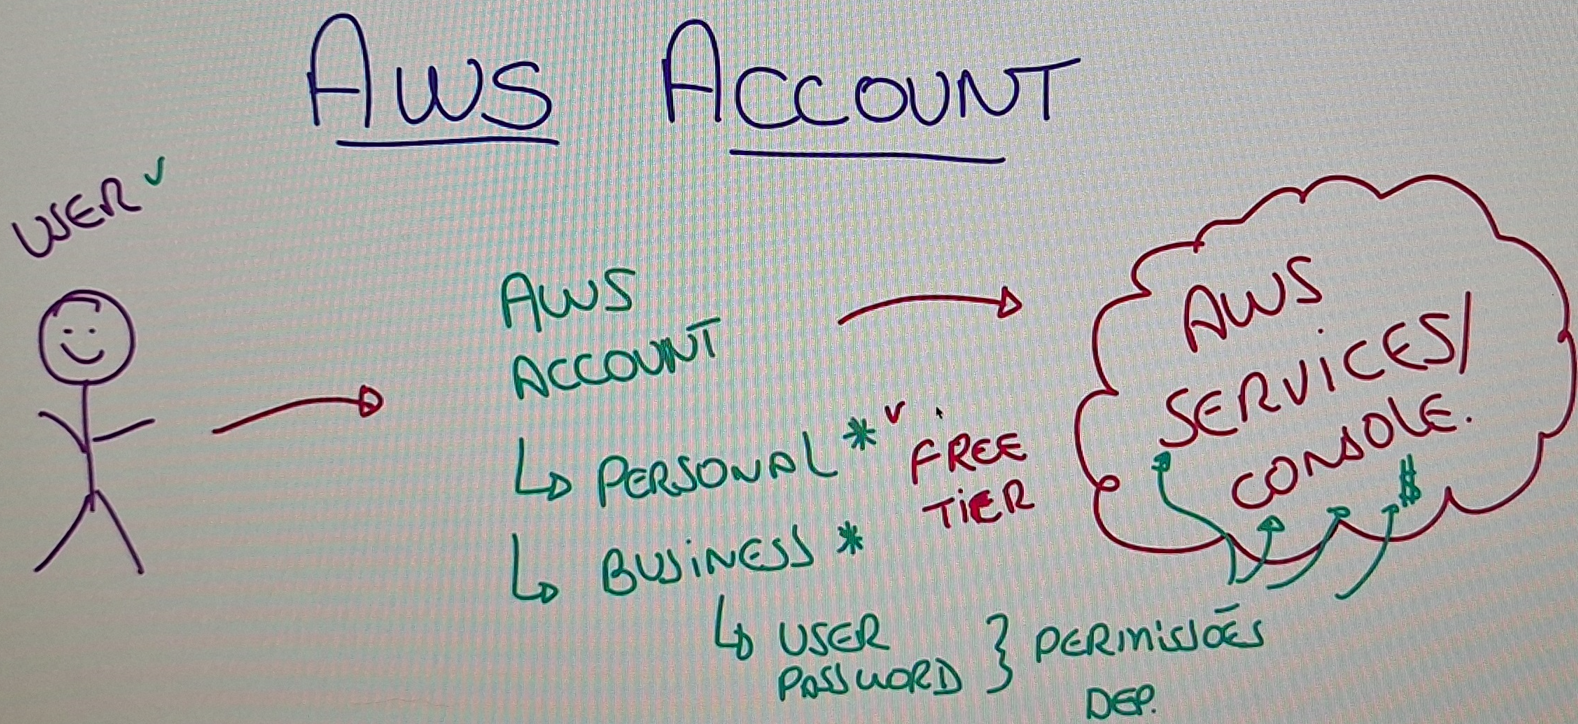 AWS ACCOUNT
USER
AWS
ACCOUNT
PERSONAL *
FREE
TIER
BUSINESS *
USER
PASSWORD } PERMISSÕES
DEP.
AWS
SERVICES/
CONSOLE.
$